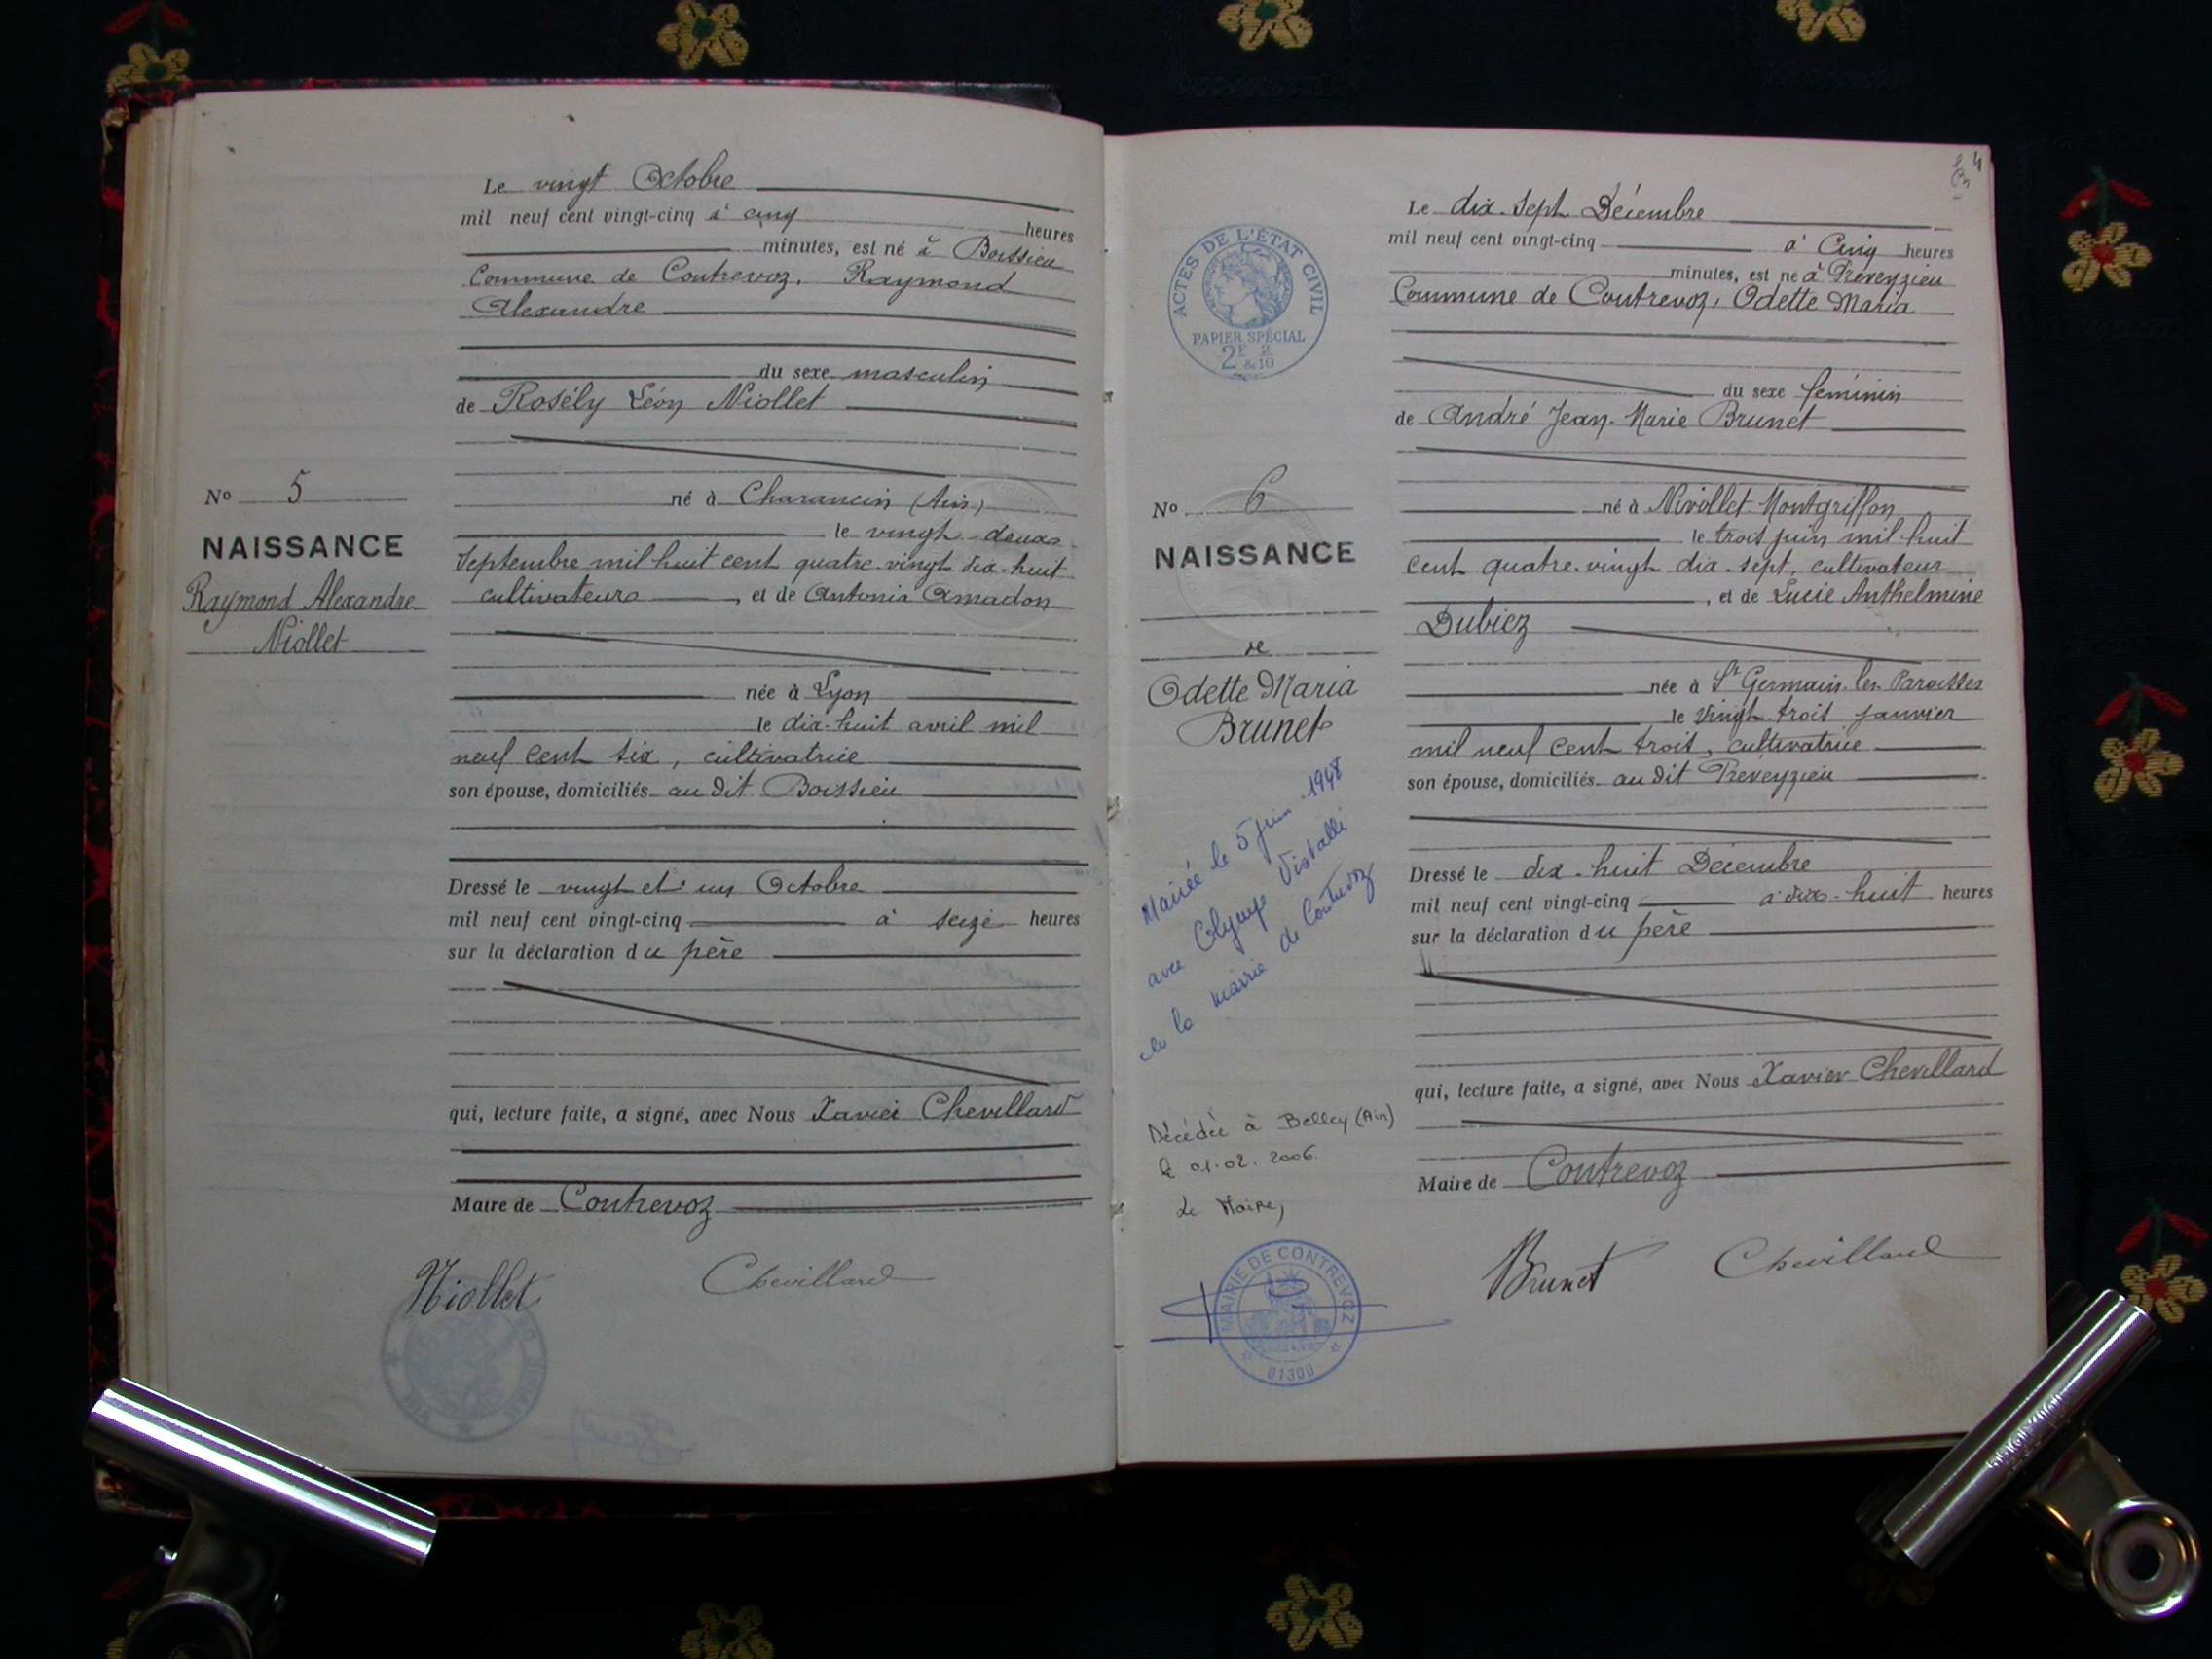 Le vingt Octobre
mil neuf cent vingt-cinq à cinq heures
minutes, est né à Boissieu
Commune de Contrevoz, Raymond
Alexandre
du sexe masculin
de Rosély Léon Niollet
né à Charancin (Ain)
le vingt deux
Septembre mil huit cent quatre-vingt dix-huit
cultivateurs, et de Antonia Amadon
née à Lyon
le dix-huit avril mil
neuf cent six, cultivatrice
son épouse, domiciliés au dit Boissieu
Dressé le vingt et un Octobre
mil neuf cent vingt-cinq à seize heures
sur la déclaration du père
qui, lecture faite, a signé, avec Nous Xavier Chevillard
Maire de Contrevoz
Niollet Chevillard
No 5
NAISSANCE
Raymond Alexandre
Niollet
4
ACTES DE L'ÉTAT CIVIL
PAPIER SPÉCIAL
No 6
NAISSANCE
de
Odette Maria
Brunet
Mariée le 5 juin 1948
avec Olympe Vistalli
à la mairie de Contrevoz
Décédée à Belley (Ain)
le 01.02.2006.
Le Maire,
MAIRIE DE CONTREVOZ
01300
Le dix-sept Décembre
mil neuf cent vingt-cinq à Cinq heures
minutes, est né à Préveyzieu
Commune de Contrevoz, Odette Maria
du sexe féminin
de André Jean-Marie Brunet
né à Nivollet-Montgriffon
le trois juin mil huit
cent quatre-vingt dix-sept, cultivateur
, et de Lucie Anthelmine
Dubiez
née à St Germain-les-Paroisses
le vingt-trois janvier
mil neuf cent trois, cultivatrice
son épouse, domiciliés au dit Préveyzieu
Dressé le dix-huit Décembre
mil neuf cent vingt-cinq à dix-huit heures
sur la déclaration du père
qui, lecture faite, a signé, avec Nous Xavier Chevillard
Maire de Contrevoz
Brunet Chevillard